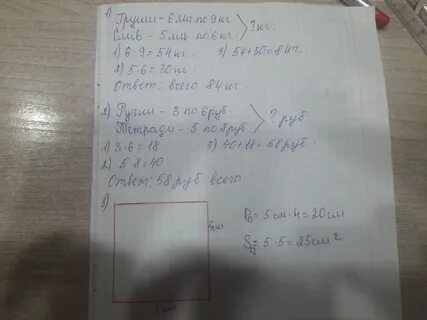 1) Груши - 6 ящ. по 9 кг
Слив - 5 ящ по 6 кг. > ? кг.
1) 6·9=54кг 3) 54+30=84кг.
2) 5·6=30кг
Ответ: всего 84кг.
2) Ручки - 3 по 6 руб
Тетради - 5 по 8 руб > ? руб
1) 3·6=18 3) 40+18=58руб.
2) 5·8=40
Ответ: 58руб всего
3)
5см
P = 5см·4=20см
S = 5·5=25см²
5см